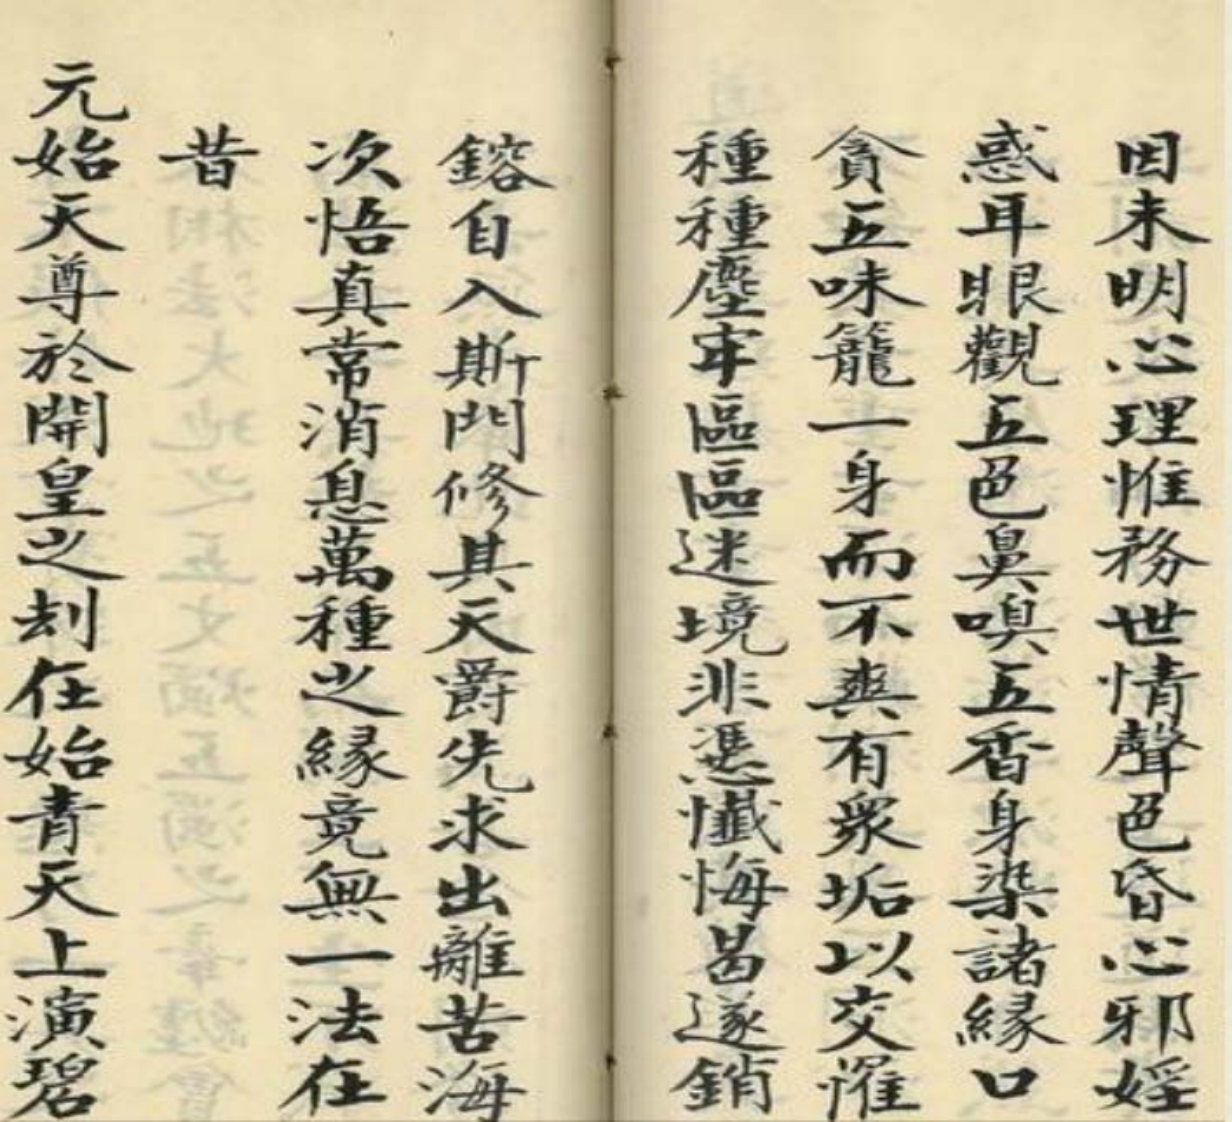 因未明心理惟務世情聲色昏心邪婬
惑耳眼觀五色鼻嗅五香身染諸緣口
貪五味籠一身而不爽有眾垢以交罹
種種塵牢區區迷境非憑懺悔曷遂銷
鎔自入斯門修其天爵先求出離苦海
次悟真常消息萬種之緣竟無一法在
昔
元始天尊於開皇之刦在始青天上演碧